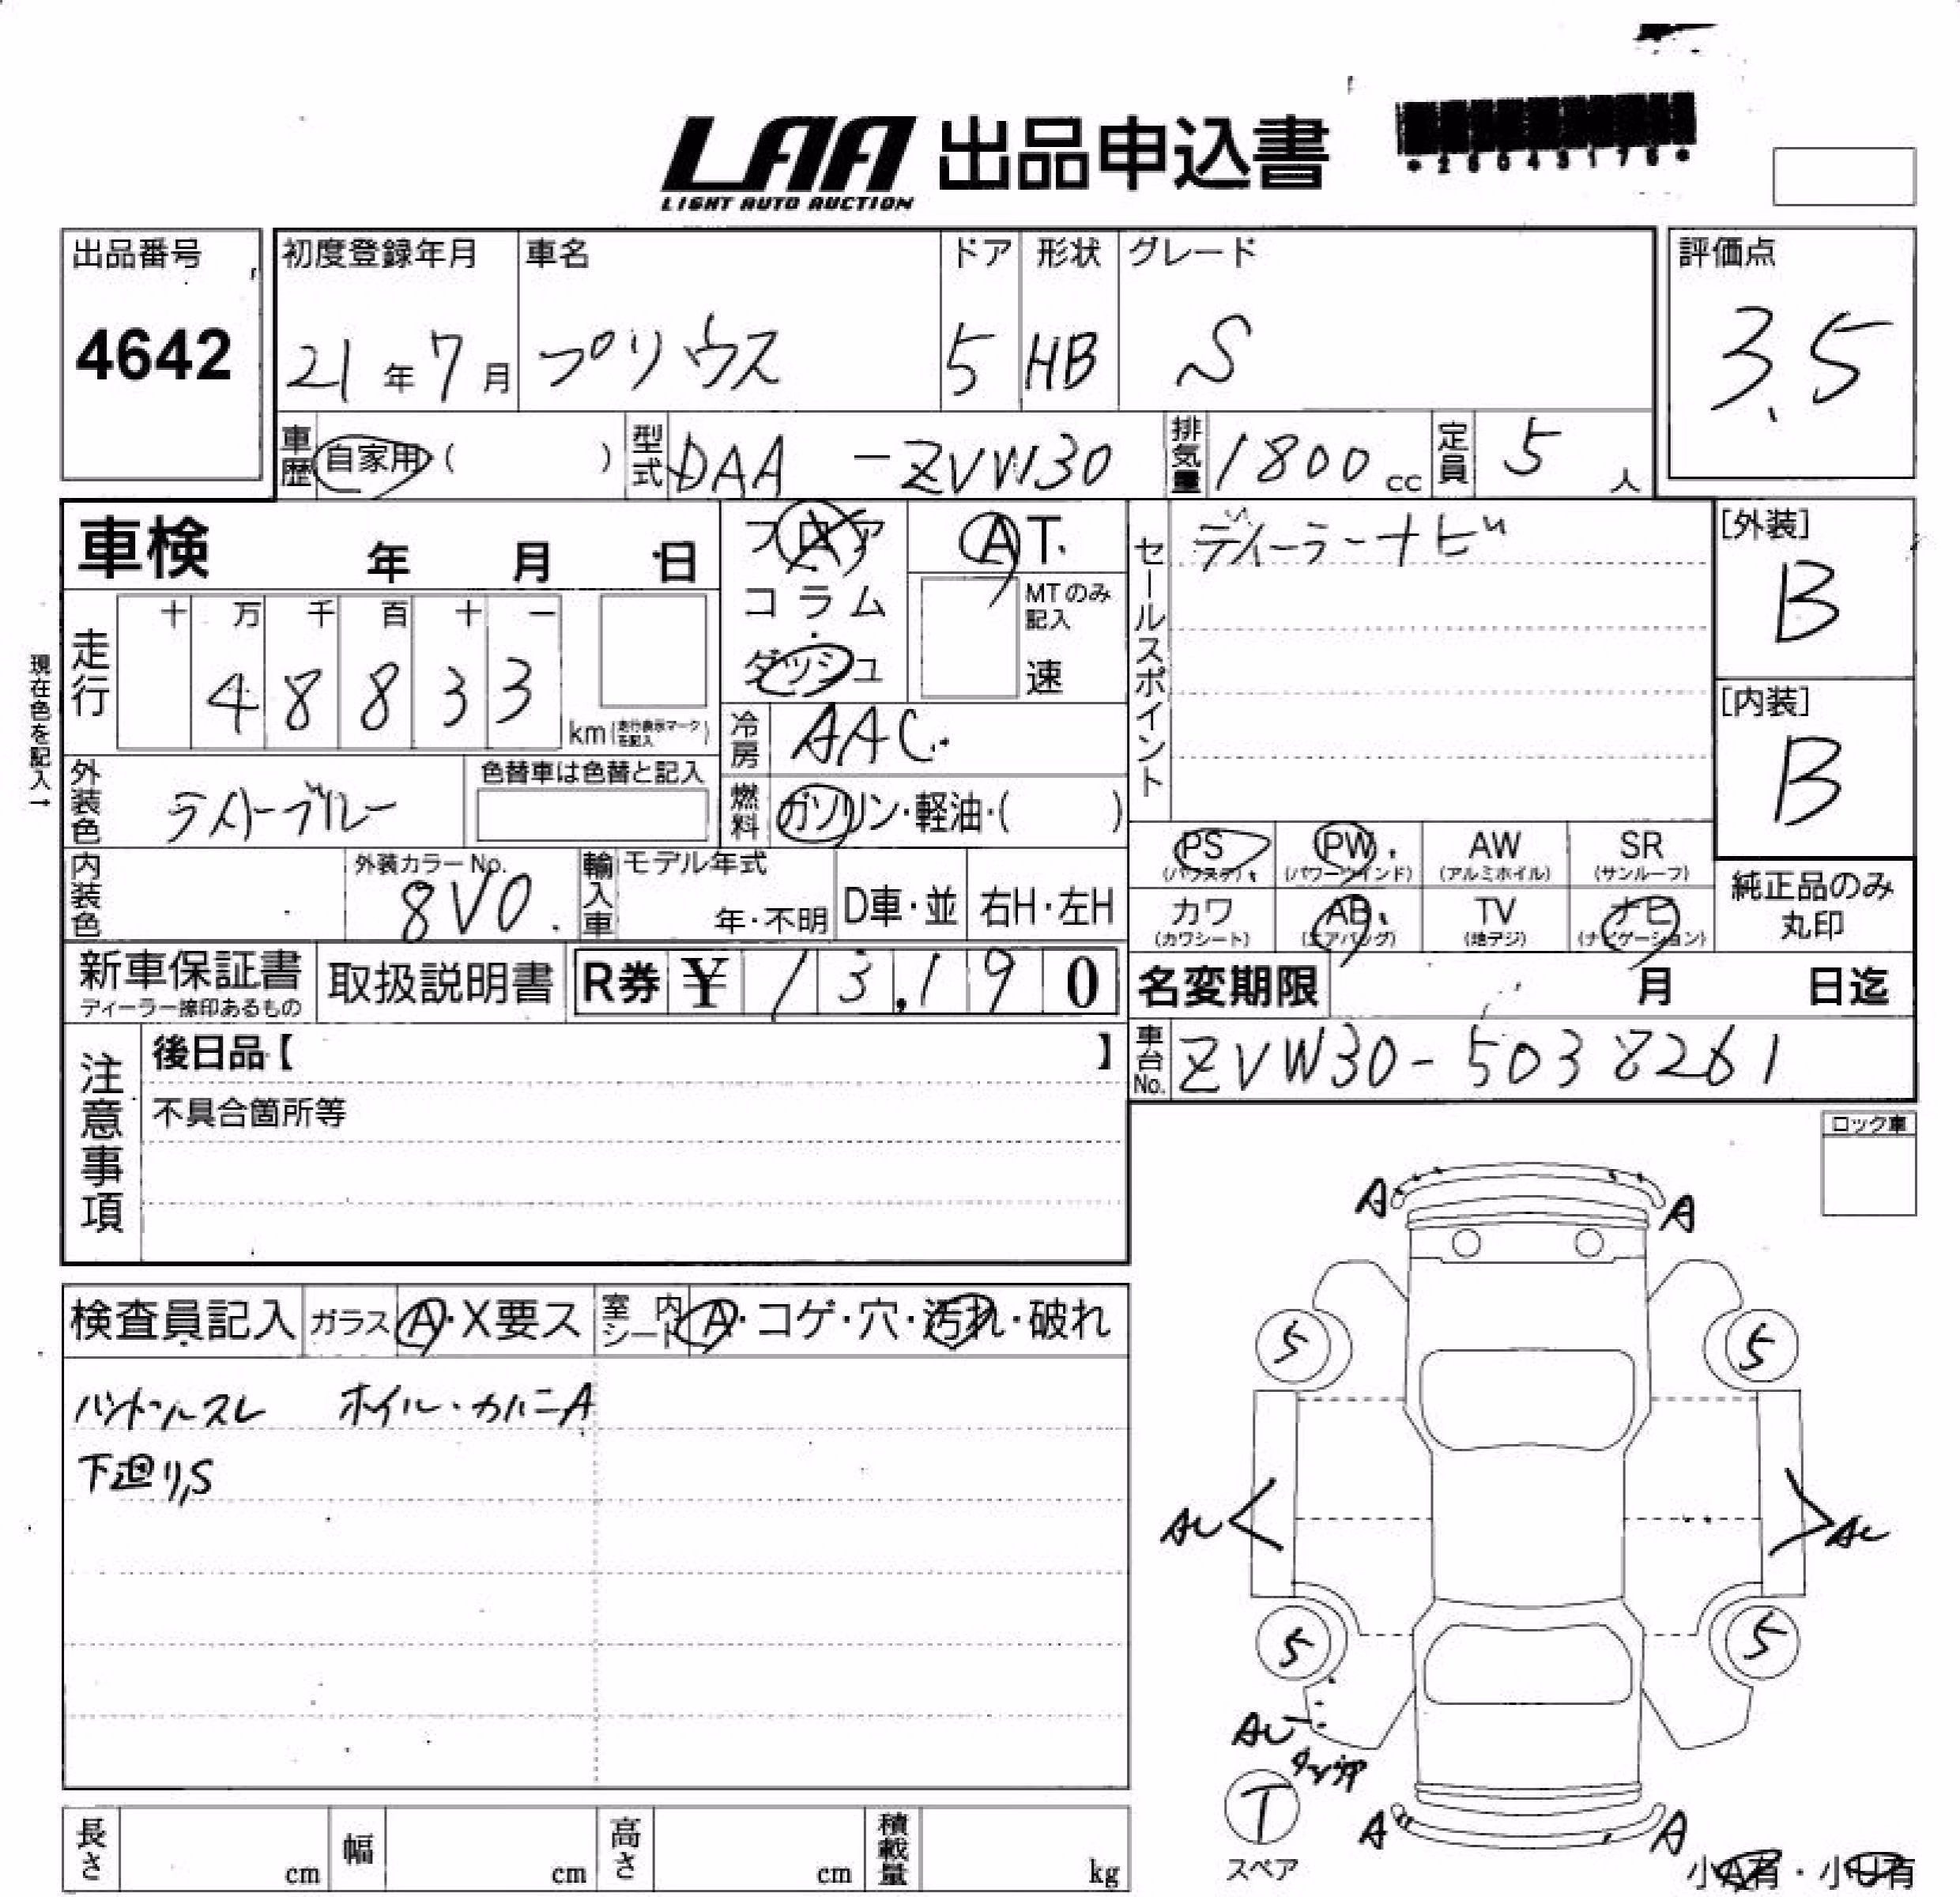 LAA 出品申込書
LIGHT AUTO AUCTION
出品番号
4642
初度登録年月
21年7月
車名
プリウス
ドア
5
形状
HB
グレード
S
評価点
3.5
車歴 自家用 ( )
型式 DAA -ZVW30
排気量 1800cc
定員 5人
車検 年 月 日
フロア
コラム
ダッシュ
AT.
MTのみ
記入
速
セールスポイント
ディーラーナビ
[外装]
B
[内装]
B
現在色を記入→
走行
十 万 千 百 十 一
4 8 8 3 3
km (走行表示マークを記入)
冷房 AAC.
外装色 ライトブルー
色替車は色替と記入
燃料 ガソリン・軽油・( )
PS PW. AW SR
(パワステ) (パワーウインド) (アルミホイル) (サンルーフ)
カワ AB. TV ナビ
(カワシート) (エアバッグ) (地デジ) (ナビゲーション)
純正品のみ
丸印
内装色
外装カラーNo.
8V0.
輸入車 モデル年式
年・不明
D車・並
右H・左H
新車保証書
取扱説明書
R券 ¥ 13,190
名変期限 月 日迄
車台No. ZVW30-5038261
注意事項
後日品【 】
不具合箇所等
ロック車
検査員記入 ガラス A・X要ス
室内シート A・コゲ・穴・汚れ・破れ
ハンドルスレ ホイル・カバーA
下廻り,S
A A
5 5
AU AU
5 5
AU
T
スペア
A A
小A有・小U有
長さ cm
幅 cm
高さ cm
積載量 kg